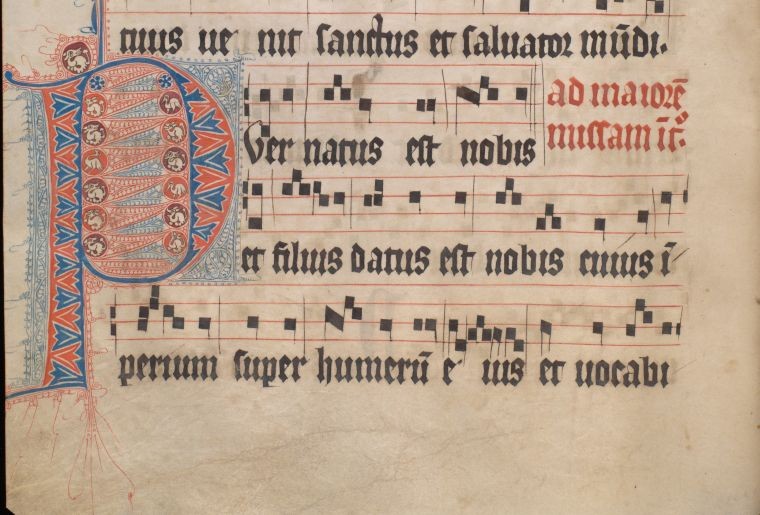 tuus ue nit sanctus et saluator mūdi.
Puer natus est nobis
ad maiorē
missam īt᷒.
et filius datus est nobis cuius ī
perium super humerū e ius et uocabi